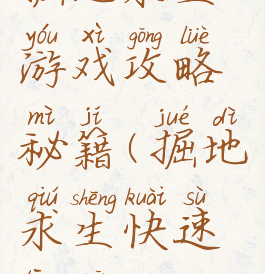 yóu xì gōng lüè
游戏攻略
mì jí jué dì
秘籍(掘地
qiú shēng kuài sù
求生快速